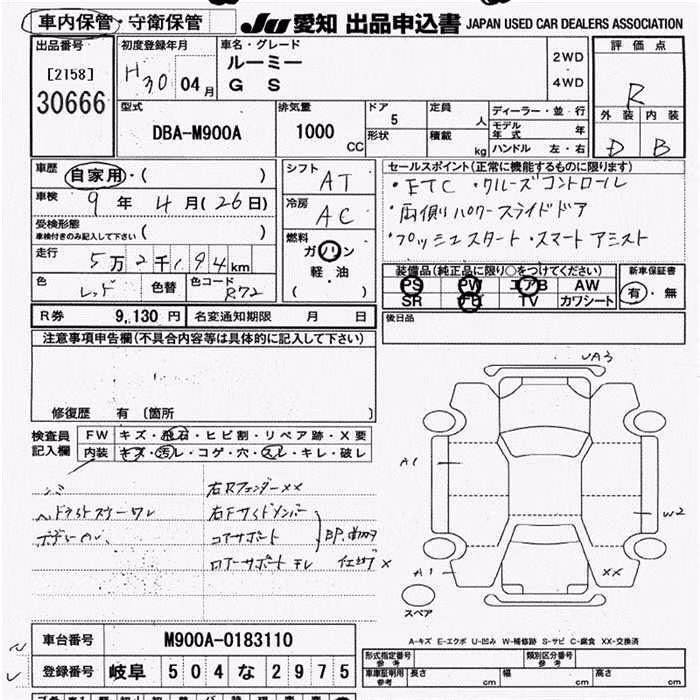 車内保管・守衛保管 JU 愛知 出品申込書 JAPAN USED CAR DEALERS ASSOCIATION
出品番号 初度登録年月 車名・グレード 評価点
[2158] H30 04月 ルーミー 2WD
30666 GS 4WD R
型式 排気量 ドア 定員 ディーラー・並・行 外装 内装
DBA-M900A 1000 CC 5 人 モデル年式 年 D B
形状 積載 kg ハンドル 左・右
車歴 自家用・( ) シフト AT セールスポイント(正常に機能するものに限ります)
車検 9年 4月(26日) 冷房 AC ・ETC ・クルーズコントロール
受検形態 ・両側パワースライドドア
車検付きのみ記入して下さい ( ) 燃料 ・プッシュスタート・スマートアシスト
走行 5万2千194km ガソリン
軽・油
( )
装備品(純品に限り○をつけてください) 新車保証書
色 レッド 色替 色コード R72 PS PW エアB AW 有・無
SR ナビ TV カワシート
R券 9,130円 名変通知期限 月 日 後日品
注意事項申告欄(不具合内容等は具体的に記入して下さい)
修復歴 有 〔箇所
UA3
検査員記入欄 FW キズ・飛石・ヒビ割・リペア跡・X要
内装 キズ・汚レ・コゲ・穴・スレ・キレ・破レ
A1
右Rフェンダー××
ヘッドライトスケーワレ 右Fサイドメンバー
W2
コアサポート
ロアーサポート
A1
××
スペア
A-キズ E-エクボ U-凹み W-補修跡 S-サビ C-腐食 XX-交換済
車台番号 M900A-0183110 型式指定番号 参考 類別区分番号 参考
登録番号 岐阜 504な2975 車庫証明用 参考 長さ cm 幅 cm 高さ cm